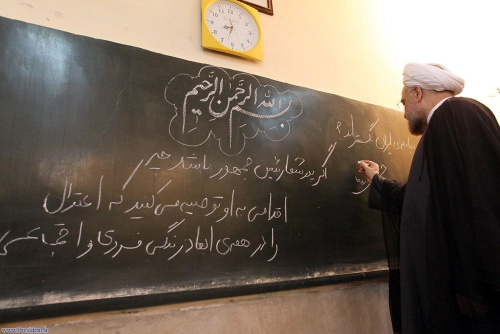 بسم الله الرحمن الرحیم
ایران
شعار رئیس جمهور باشد چه
اقدامی به او توصیه می کنید که اعتدال
را در همه ی ابعاد زندگی فردی و اجتماعی